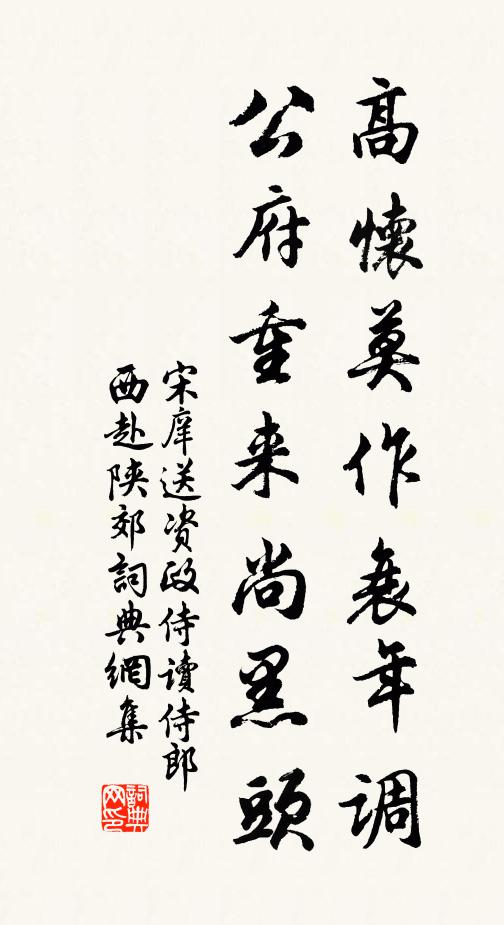 高懷莫作衰年調
公府重来尚黑頭
宋庠送资政侍讀侍郎
西赴陝郊詞典網集
詞典网印